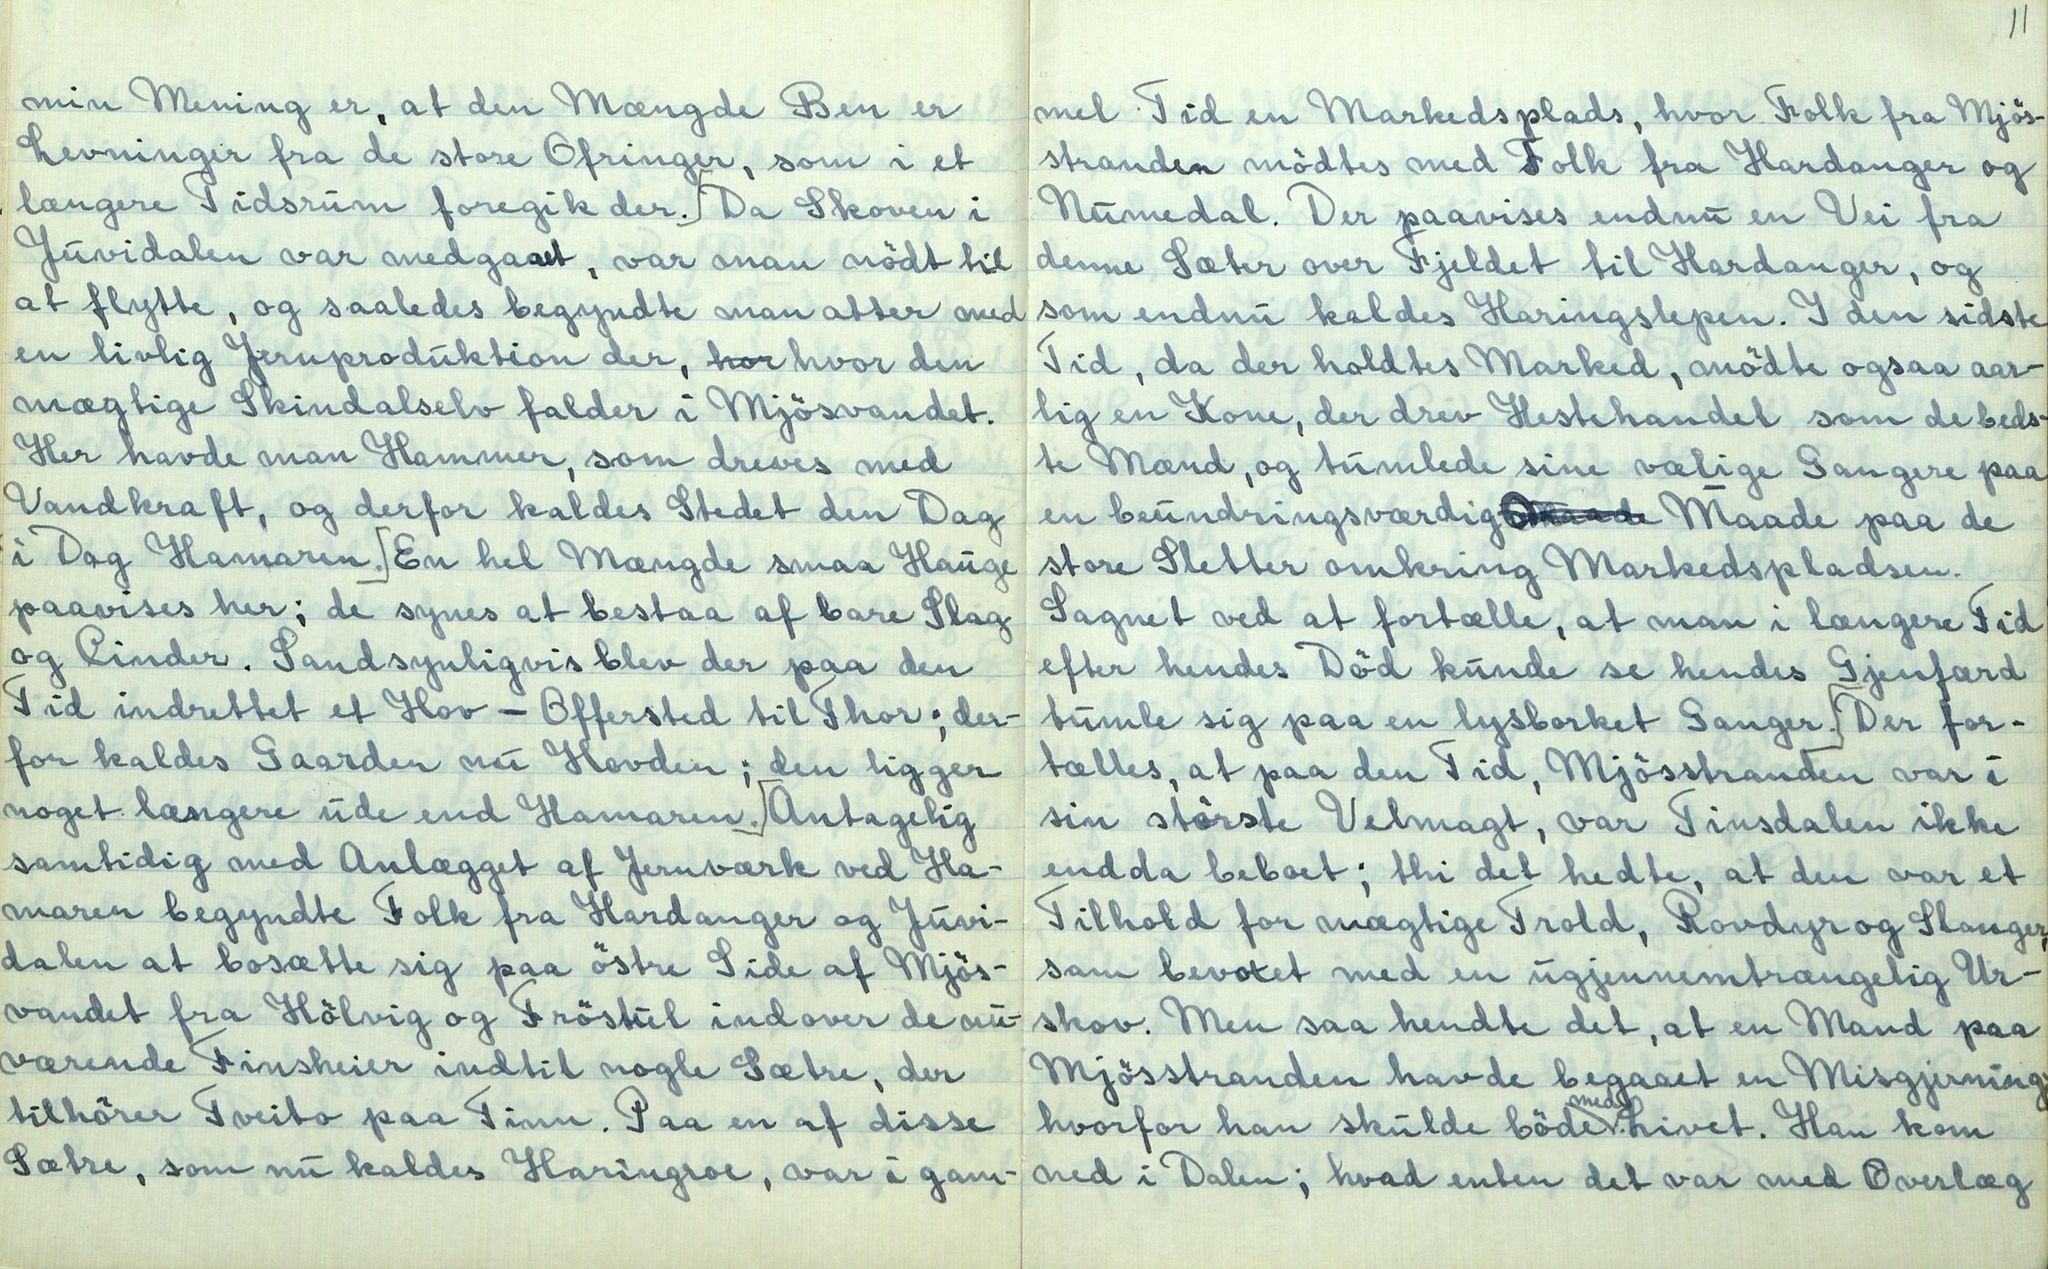 min Mening er, at den Mængde Ben er
Levninger fra de store Ofringer, som i et
længere Tidsrum foregik der. [Da Skoven i
Juvidalen var medgaaet, var man nödt til
at flytte, og saaledes begyndte man atter med
en livlig Jernproduktion der, hor hvor den
mægtige Skindalselv falder i Mjösvandet.
Her havde man Hammer, som dreves med
Vandkraft, og derfor kaldes Stedet den Dag
i Dag Hamaren. [En hel Mængde smaa Hauge
paavises her; de synes at bestaa af bare Slag
og Cinder. Sandsynligvis blev der paa den
Tid indrettet et Hov – Offersted til Thor; der-
for kaldes Gaarden nu Hovden; den ligger
noget længere ude end Hamaren. [Antagelig
samtidig med Anlægget af Jernværk ved Ha-
maren begyndte Folk fra Hardanger og Juvi-
dalen at bosætte sig paa östre Side af Mjös-
vandet fra Hölvig og Fröstul indover de nu-
værende Finsheier indtil nogle Sætre, der
tilhörer Tveito paa Tinn. Paa en af disse
Sætre, som nu kaldes Haringroe, var i gam-
11
mel Tid en Markedsplads, hvor Folk fra Mjös-
stranden mödtes med Folk fra Hardanger og
Numedal. Der paavises endnu en Vei fra
denne Sæter over Fjeldet til Hardanger, og
som endnu kaldes Haringslepen. I den sidste
Tid, da der holdtes Marked, mödte ogsaa aar-
lig en Kone, der drev Hestehandel som de beds-
te Mænd, og tumlede sine vælige Gangere paa
en beundringsværdig Maade paa de
store Sletter omkring Markedspladsen.
Sagnet ved at fortælle, at man i længere Tid
efter hendes Död kunde se hendes Gjenfærd
tumle sig paa en lysborket Ganger. [Der for-
tælles, at paa den Tid, Mjösstranden var i
sin störste Velmagt, var Tinsdalen ikke
endda beboet; thi det hedte, at den var et
Tilhold for mægtige Trold, Rovdyr og Slanger,
sam bevoxet med en ugjennemtrængelig Ur-
skov. Men saa hendte det, at en Mand paa
Mjösstranden havde begaaet en Misgjerning,
hvorfor han skulde böde med Livet. Han kom
ned i Dalen; hvad enten det var med Overlæg